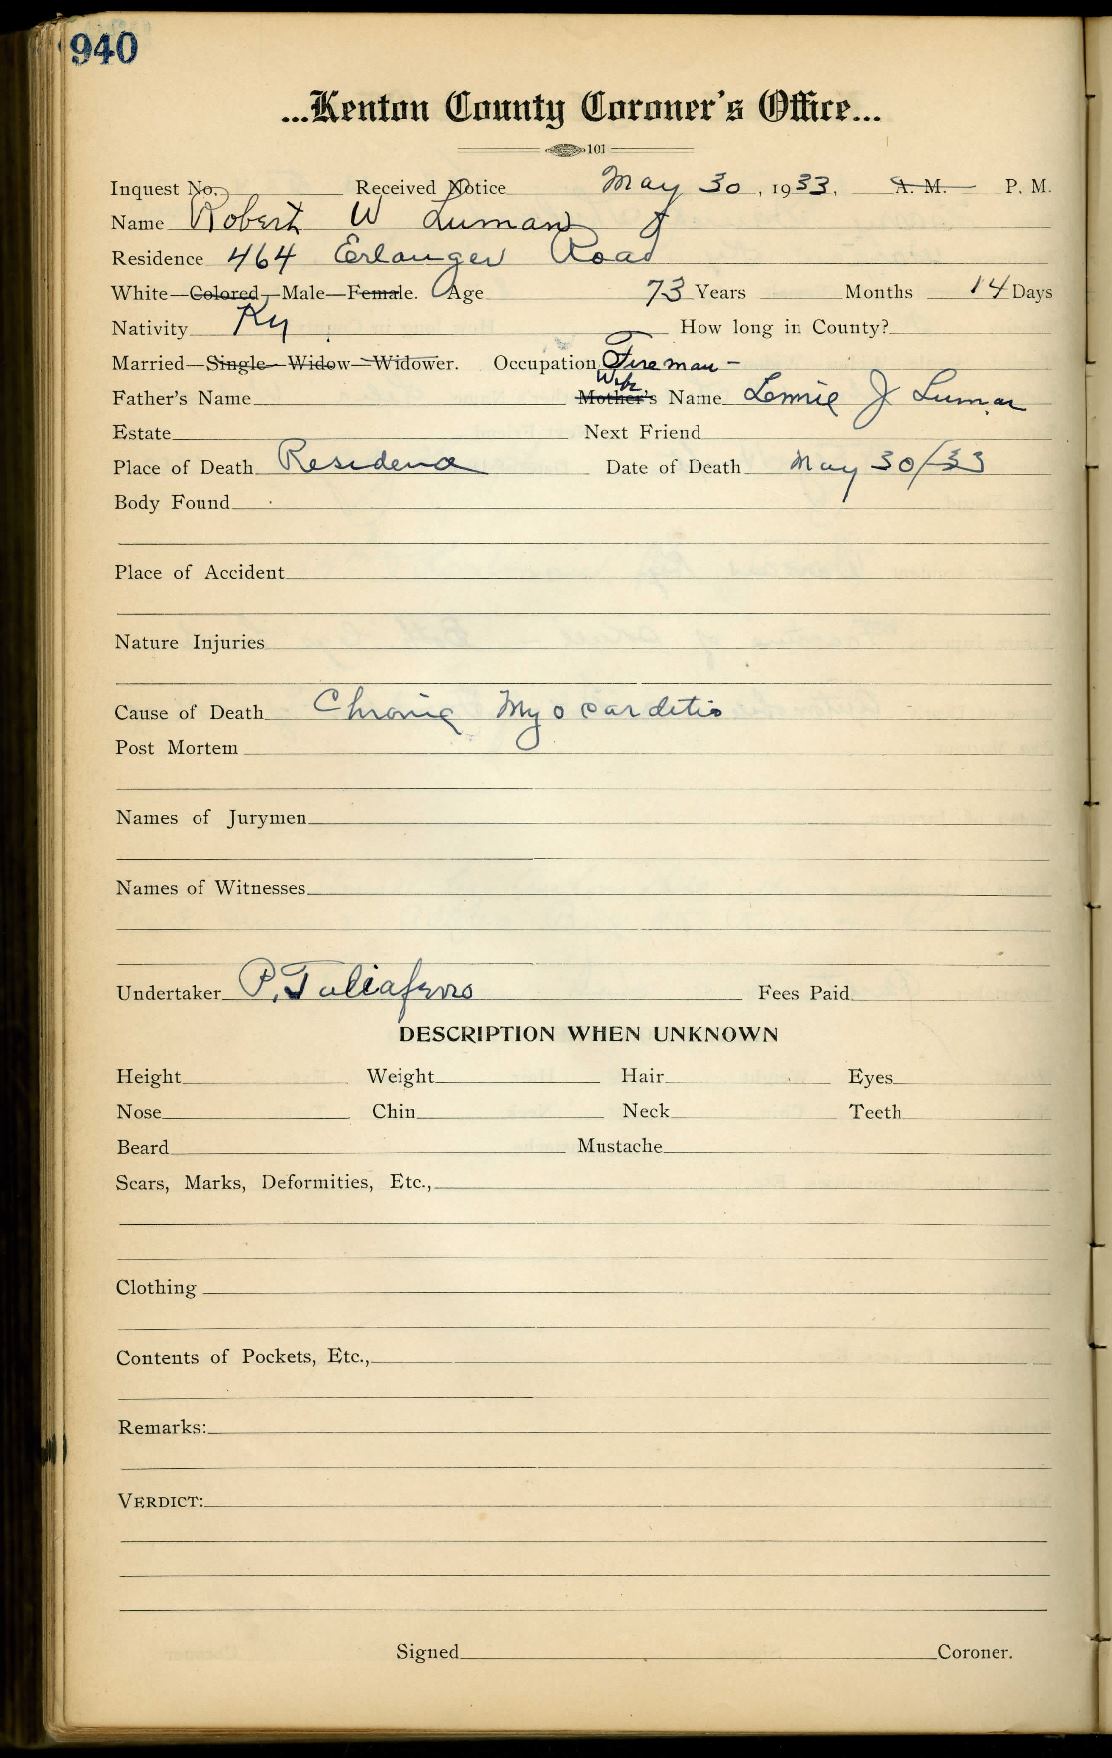 940
...Kenton County Coroner's Office...
101
Inquest No. Received Notice May 30, 1933, A. M. P. M.
Name Robert W Luman
Residence 464 Erlanger Road
White—Colored—Male—Female. Age 73 Years Months 14 Days
Nativity Ky How long in County?
Married—Single—Widow—Widower. Occupation Fireman -
Father's Name Mother's Wife Name Lennie J Luman
Estate Next Friend
Place of Death Residence Date of Death May 30/33
Body Found
Place of Accident
Nature Injuries
Cause of Death Chronic Myocarditis
Post Mortem
Names of Jurymen
Names of Witnesses
Undertaker P. Taliaferro Fees Paid
DESCRIPTION WHEN UNKNOWN
Height Weight Hair Eyes
Nose Chin Neck Teeth
Beard Mustache
Scars, Marks, Deformities, Etc.,
Clothing
Contents of Pockets, Etc.,
Remarks:
VERDICT:
Signed Coroner.